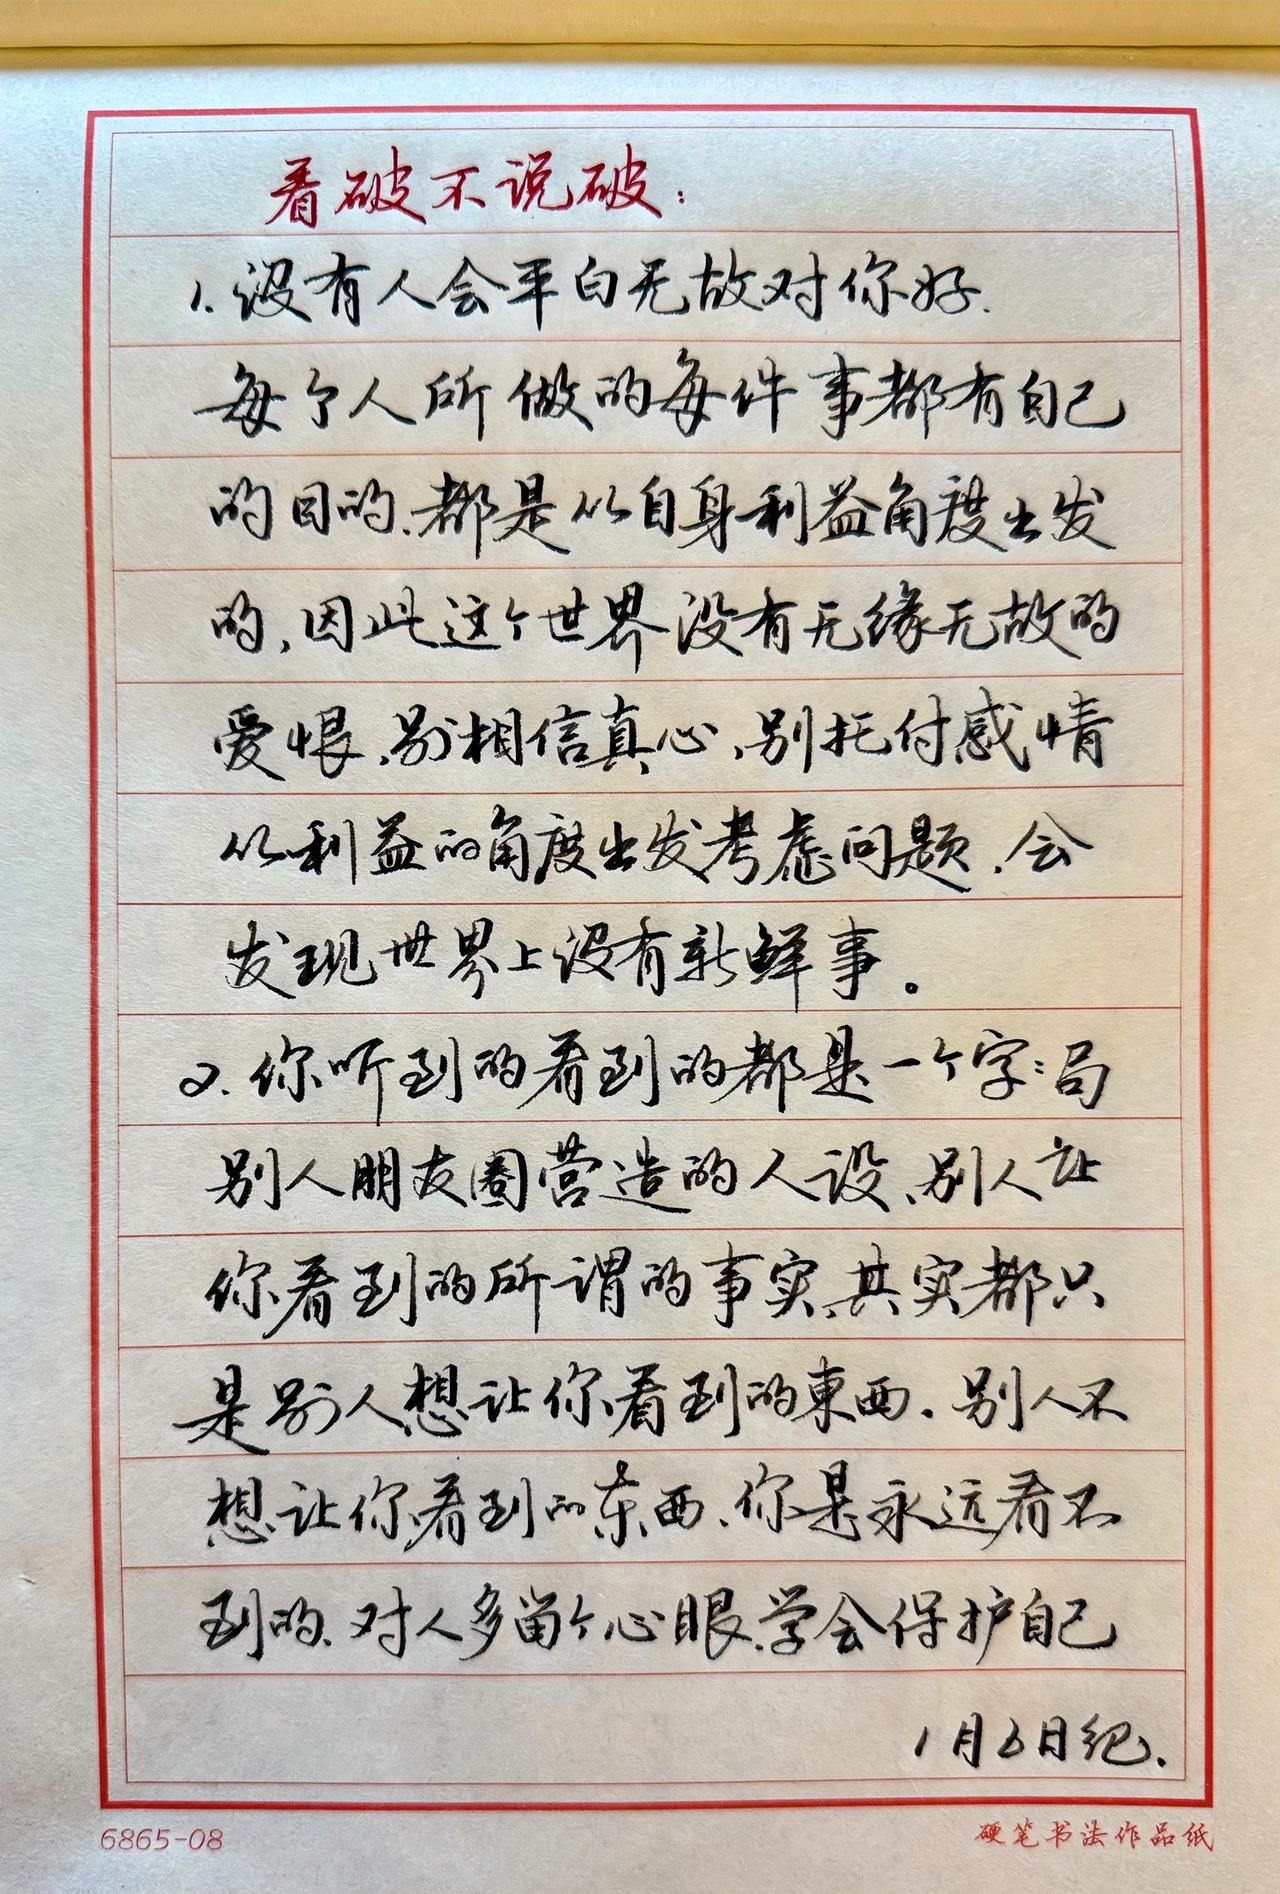 看破不说破：
1.没有人会平白无故对你好.
每个人所做的每件事都有自己
的目的、都是从自身利益角度出发
的，因此这个世界没有无缘无故的
爱恨、别相信真心、别托付感情
从利益的角度出发考虑问题、会
发现世界上没有新鲜事。
2.你听到的看到的都是一个字：局
别人朋友圈营造的人设、别人让
你看到的所谓的事实、其实都只
是别人想让你看到的東西.别人不
想让你看到的东西、你是永远看不
到的、对人多留个心眼、学会保护自己
1月6日纪.
6865-08
硬笔书法作品纸